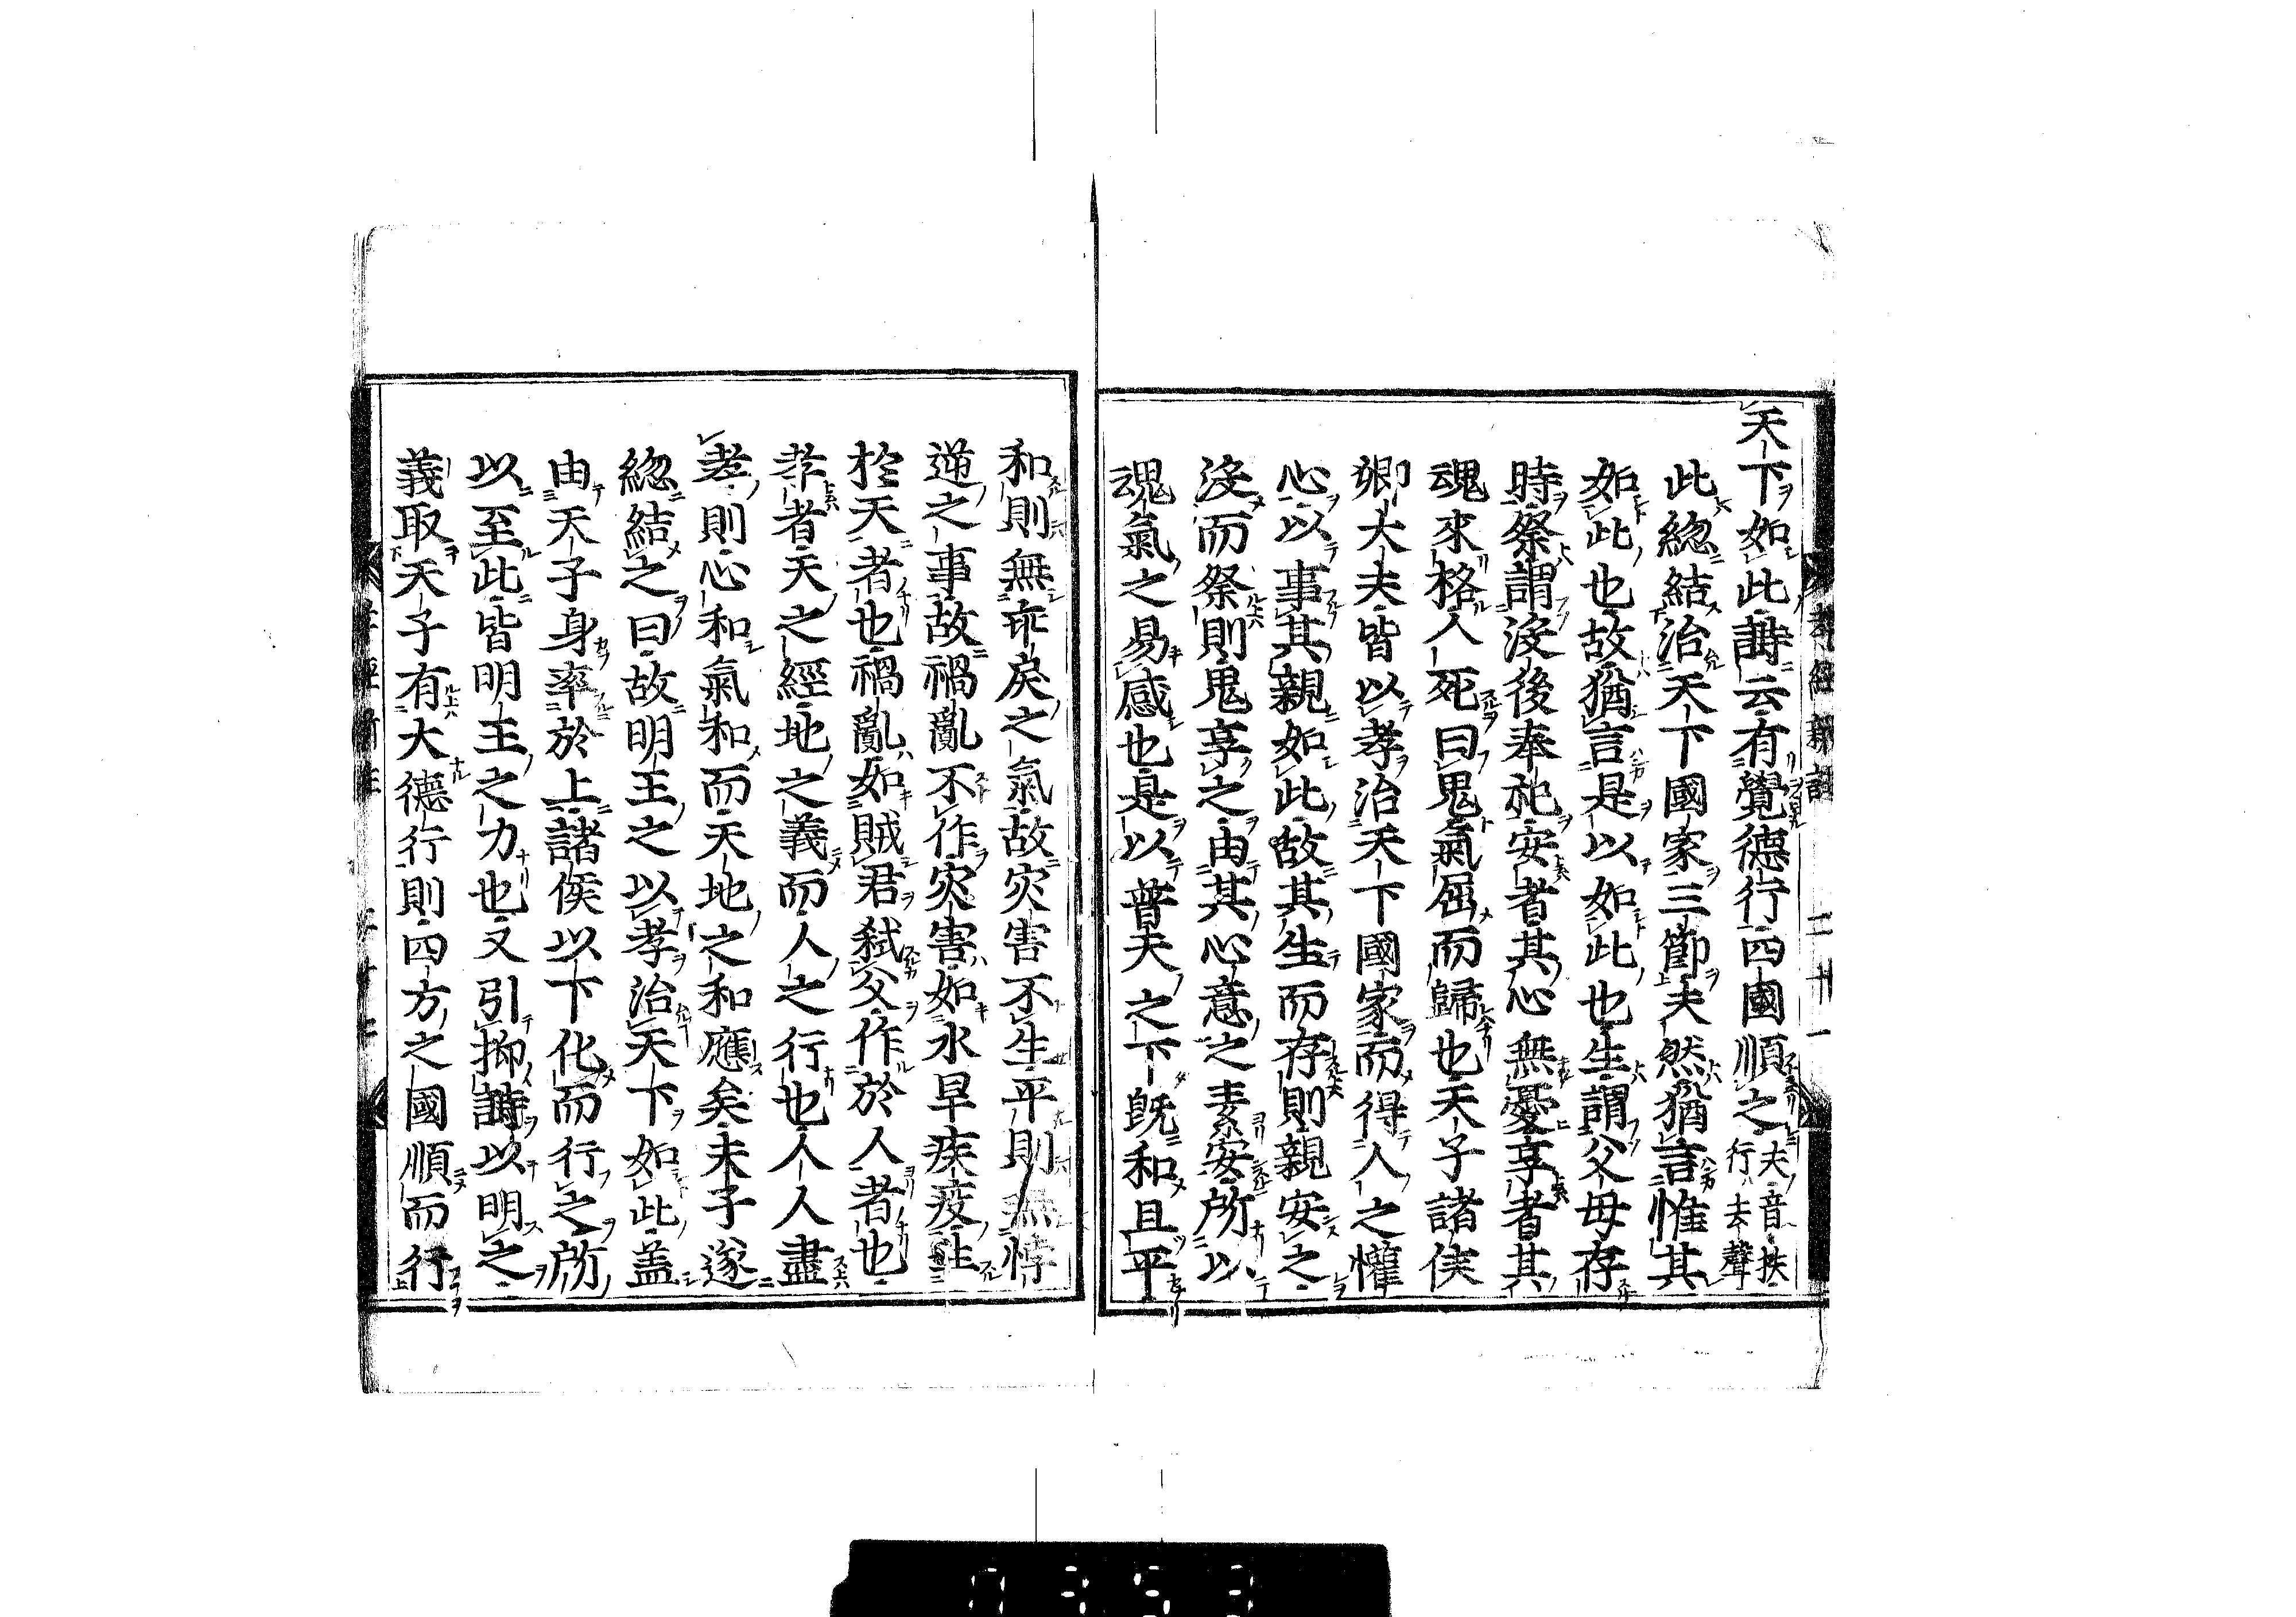 天下如此詩云有覺德行四國順之夫音扶行去聲
此緫結治天下國家三節夫然猶言惟其
如此也故猶言是以如此也生謂父母存
時祭謂沒後奉祀安者其心無憂享者其
魂來格人死曰鬼氣屈而歸也天子諸侯
卿大夫皆以孝治天下國家而得人之懽
心以事其親如此故其生而存則親安之
沒而祭則鬼享之由其心意之素安所以
魂氣之易感也是以普天之下旣和且平
和則無乖戾之氣故灾害不生平則無悖
逆之事故禍亂不作灾害如水旱疾疫生
於天者也禍亂如賊君弑父作於人者也
孝者天之經地之義而人之行也人人盡
孝則心和氣和而天地之和應矣末子遂
緫結之曰故明王之以孝治天下如此盖
由天子身率於上諸侯以下化而行之所
以至此皆明王之力也又引抑詩以明之
義取天子有大德行則四方之國順而行